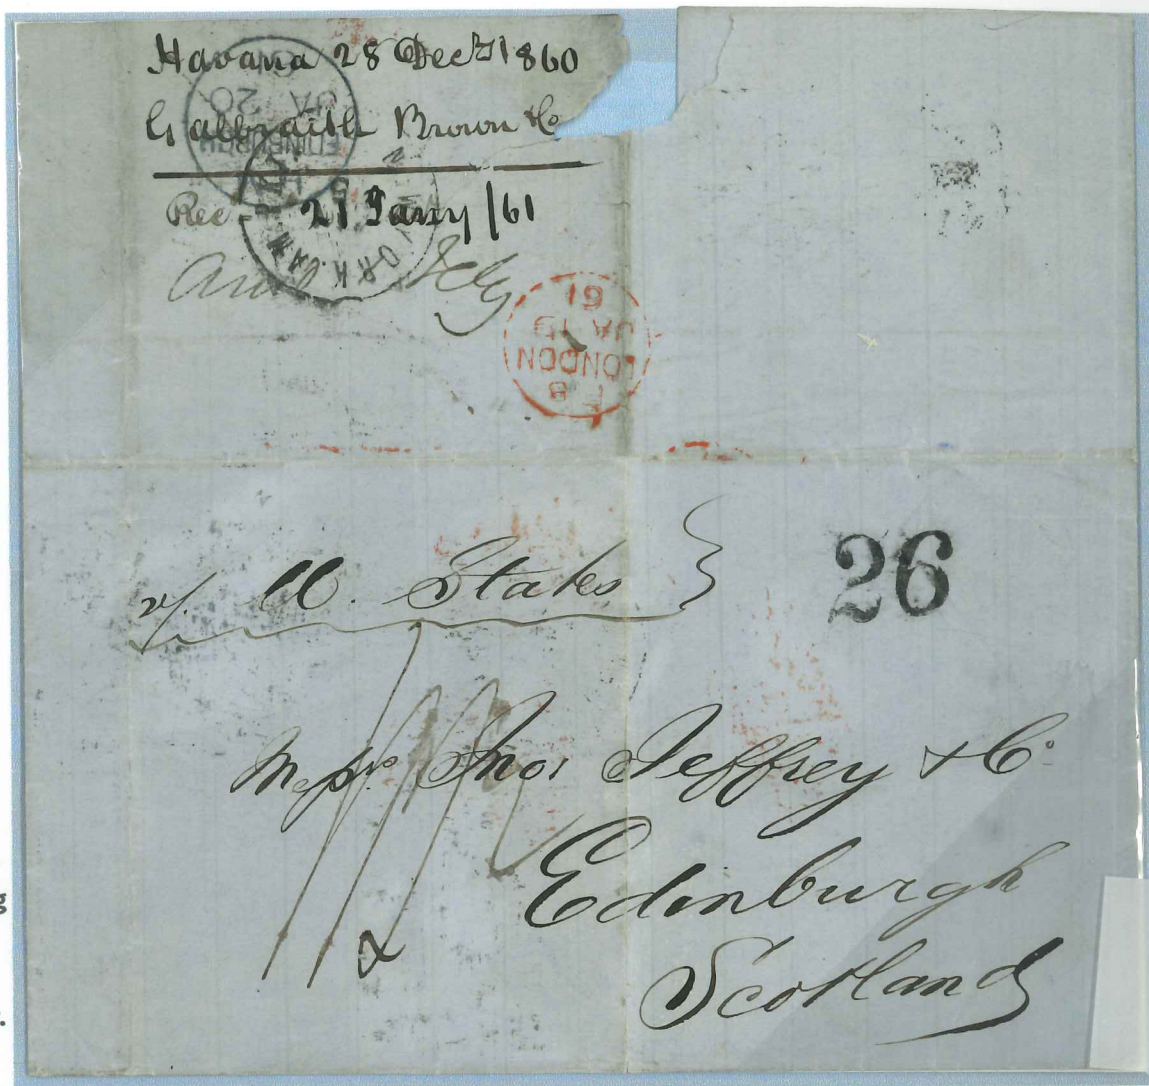 Havana 28 Dec 1860
Galbraith Brown & Co
Rec 21 Jany /61
EDINBURGH
JA 20
61
YORK JAN
LONDON
JA 19
61
v/. U. States
26
Messrs Jno. Jeffrey & Co.
Edinburgh
Scotland